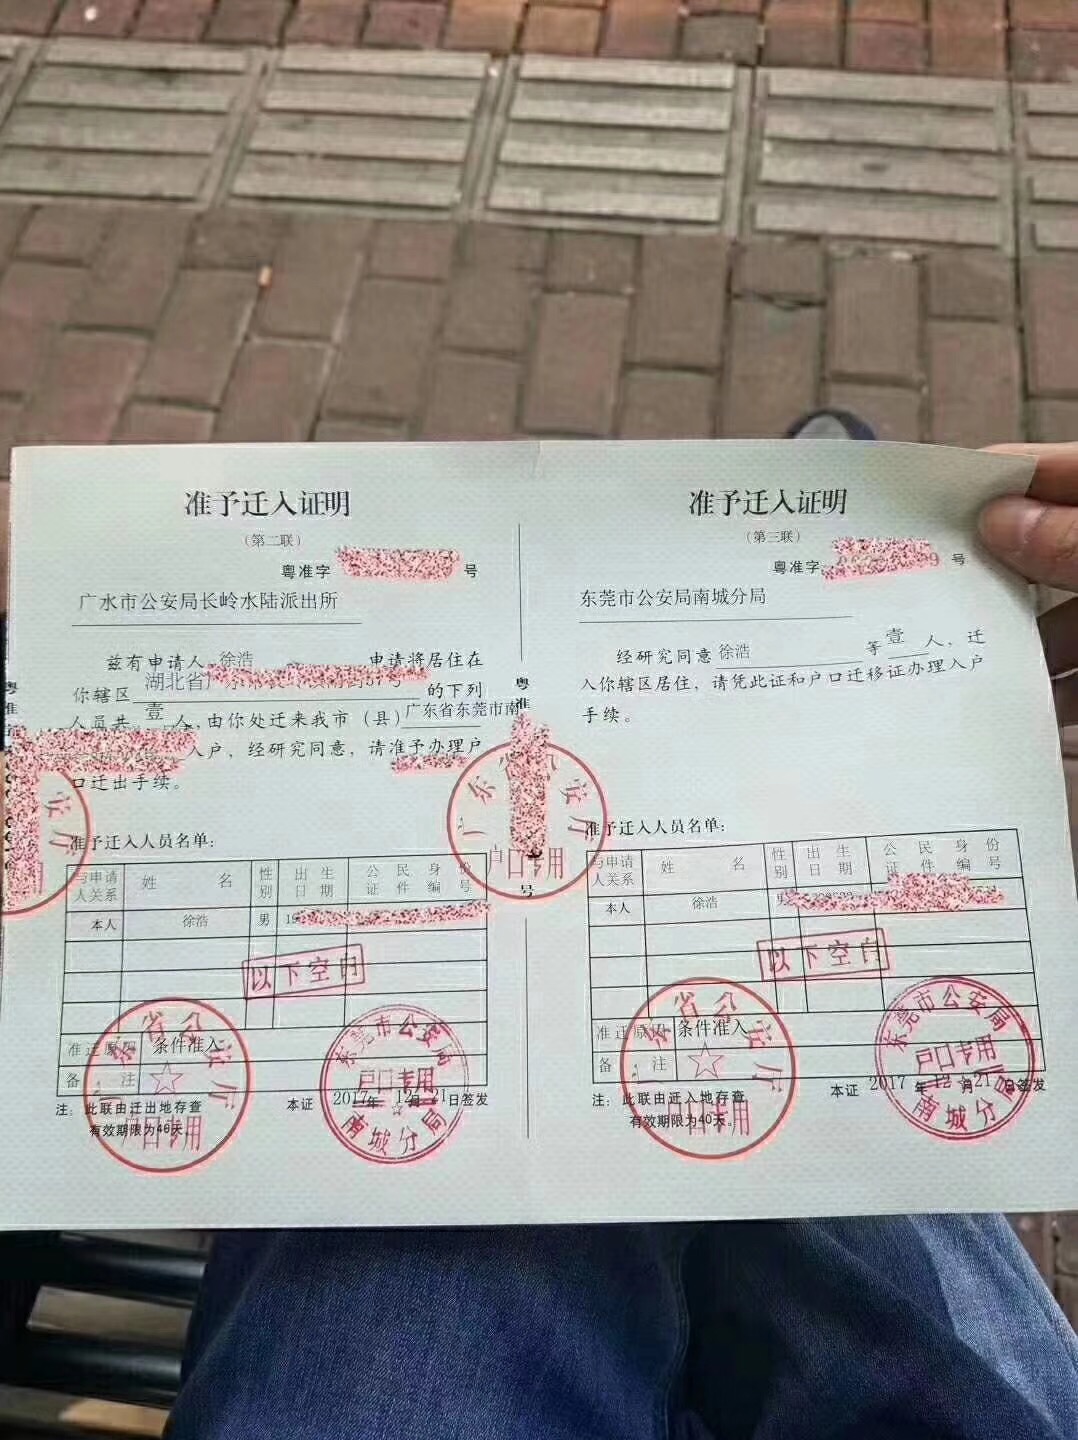 准予迁入证明
(第二联)
粤准字 号
广水市公安局长岭水陆派出所
兹有申请人 徐浩 申请将居住在
你辖区 湖北省广 的下列
人员共 壹 人,由你处迁来我市(县)广东省东莞市南
入户,经研究同意,请准予办理户
口迁出手续。
准予迁入人员名单:
与申请人关系 姓名 性别 出生日期 公民身份证件编号
本人 徐浩 男 19
以下空白
准迁原因 条件准入
备注
注: 此联由迁出地存查
有效期限为40天。
本证 2017年12月21日签发
广东省公安厅
户口专用
东莞市公安局
户口专用
南城分局
粤准
号
广东省公安厅
户口专用
准予迁入证明
(第三联)
粤准字 9 号
东莞市公安局南城分局
经研究同意 徐浩 等 壹 人,迁
入你辖区居住,请凭此证和户口迁移证办理入户
手续。
准予迁入人员名单:
与申请人关系 姓名 性别 出生日期 公民身份证件编号
本人 徐浩 男
以下空白
准迁原因 条件准入
备注
注: 此联由迁入地存查
有效期限为40天。
本证 2017年12月21日签发
广东省公安厅
户口专用
东莞市公安局
户口专用
南城分局